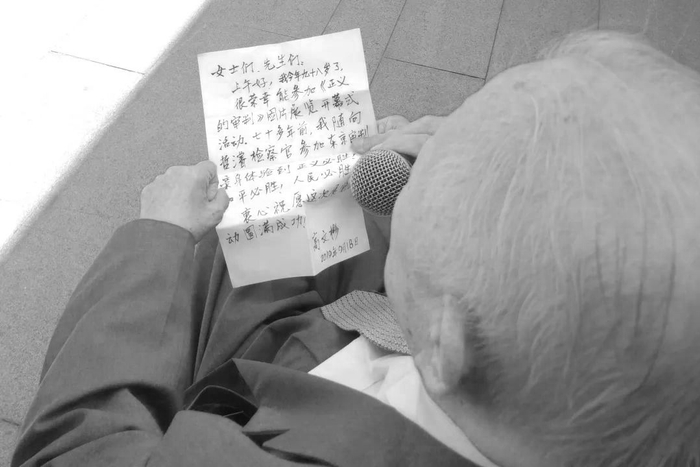 女士们、先生们,
上午好,我今年九十八岁了,
很荣幸能参加《正义
的审判》图片展览开幕式
活动。七十多年前,我随向
哲濬检察官参加东京审判
正义必胜
平必胜!人民必胜
衷心祝愿这
动圆满成功!
高文彬